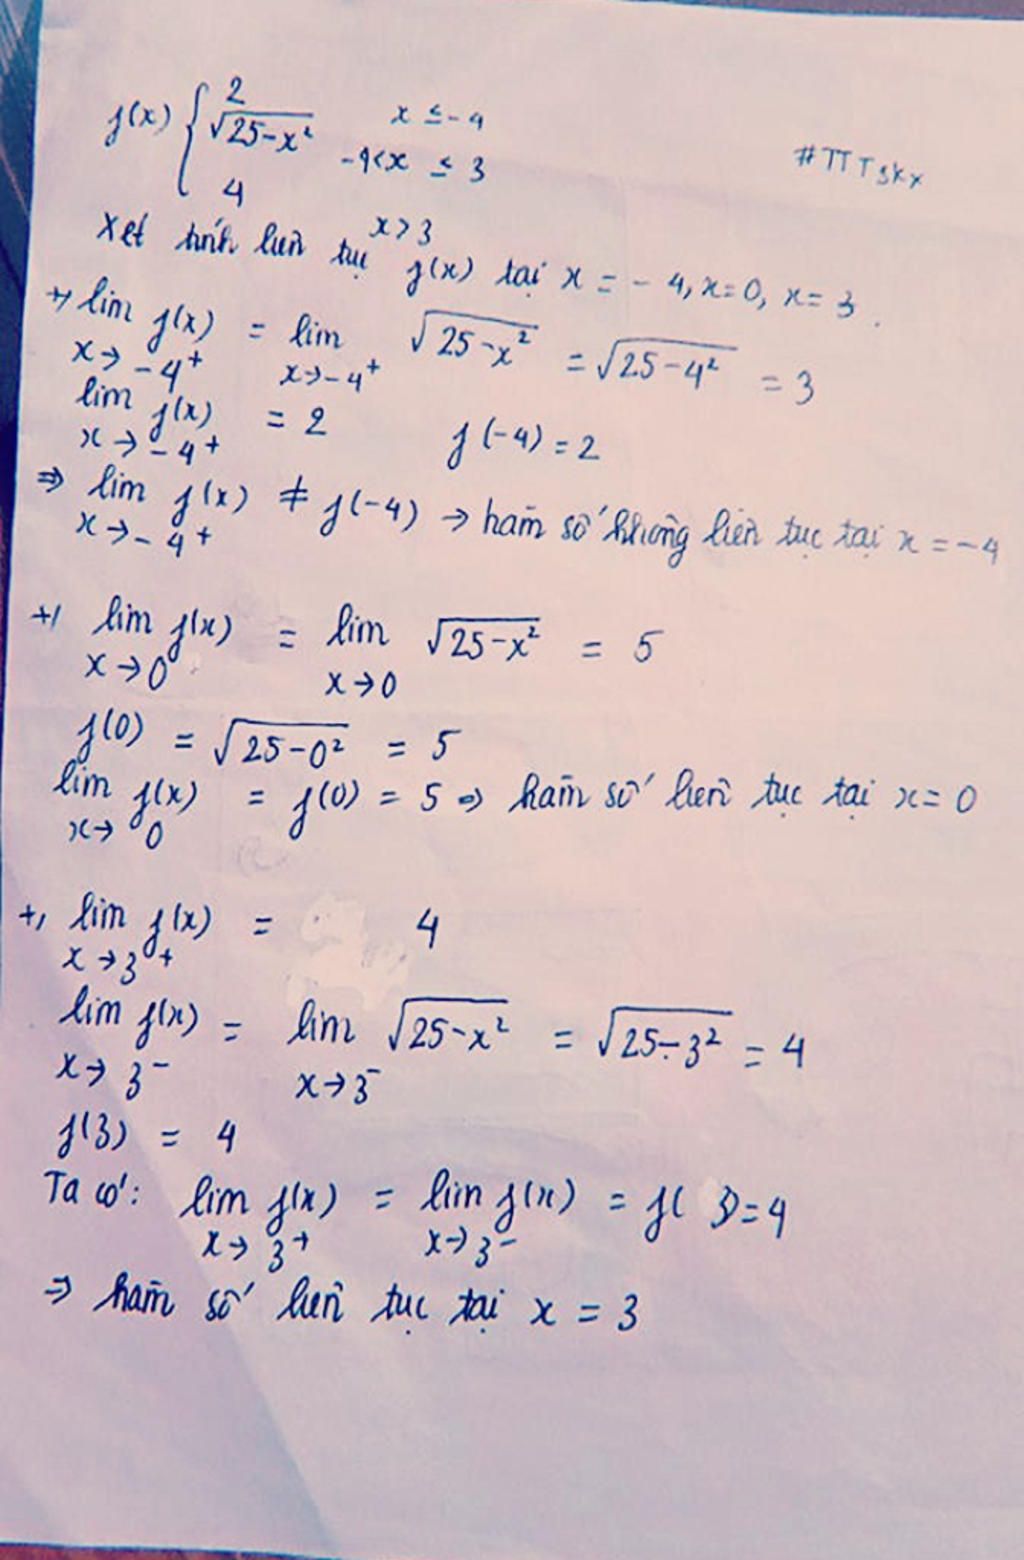 f(x) { 2 x ≤ -4
√25-x² -4<x ≤ 3
4 x > 3
#TTTskx
Xét tính liên tục f(x) tại x = - 4, x=0, x= 3.
+, lim x→-4⁺ f(x) = lim x→-4⁺ √25-x² = √25-4² = 3
lim x→-4⁺ f(x) = 2 f(-4) = 2
⇒ lim x→-4⁺ f(x) ≠ f(-4) → hàm số không liên tục tại x = -4
+, lim x→0 f(x) = lim x→0 √25-x² = 5
f(0) = √25-0² = 5
lim x→0 f(x) = f(0) = 5 ⇒ hàm số liên tục tại x= 0
+, lim x→3⁺ f(x) = 4
lim x→3⁻ f(x) = lim x→3⁻ √25-x² = √25-3² = 4
f(3) = 4
Ta có: lim x→3⁺ f(x) = lim x→3⁻ f(x) = f( 3)=4
⇒ hàm số liên tục tại x = 3